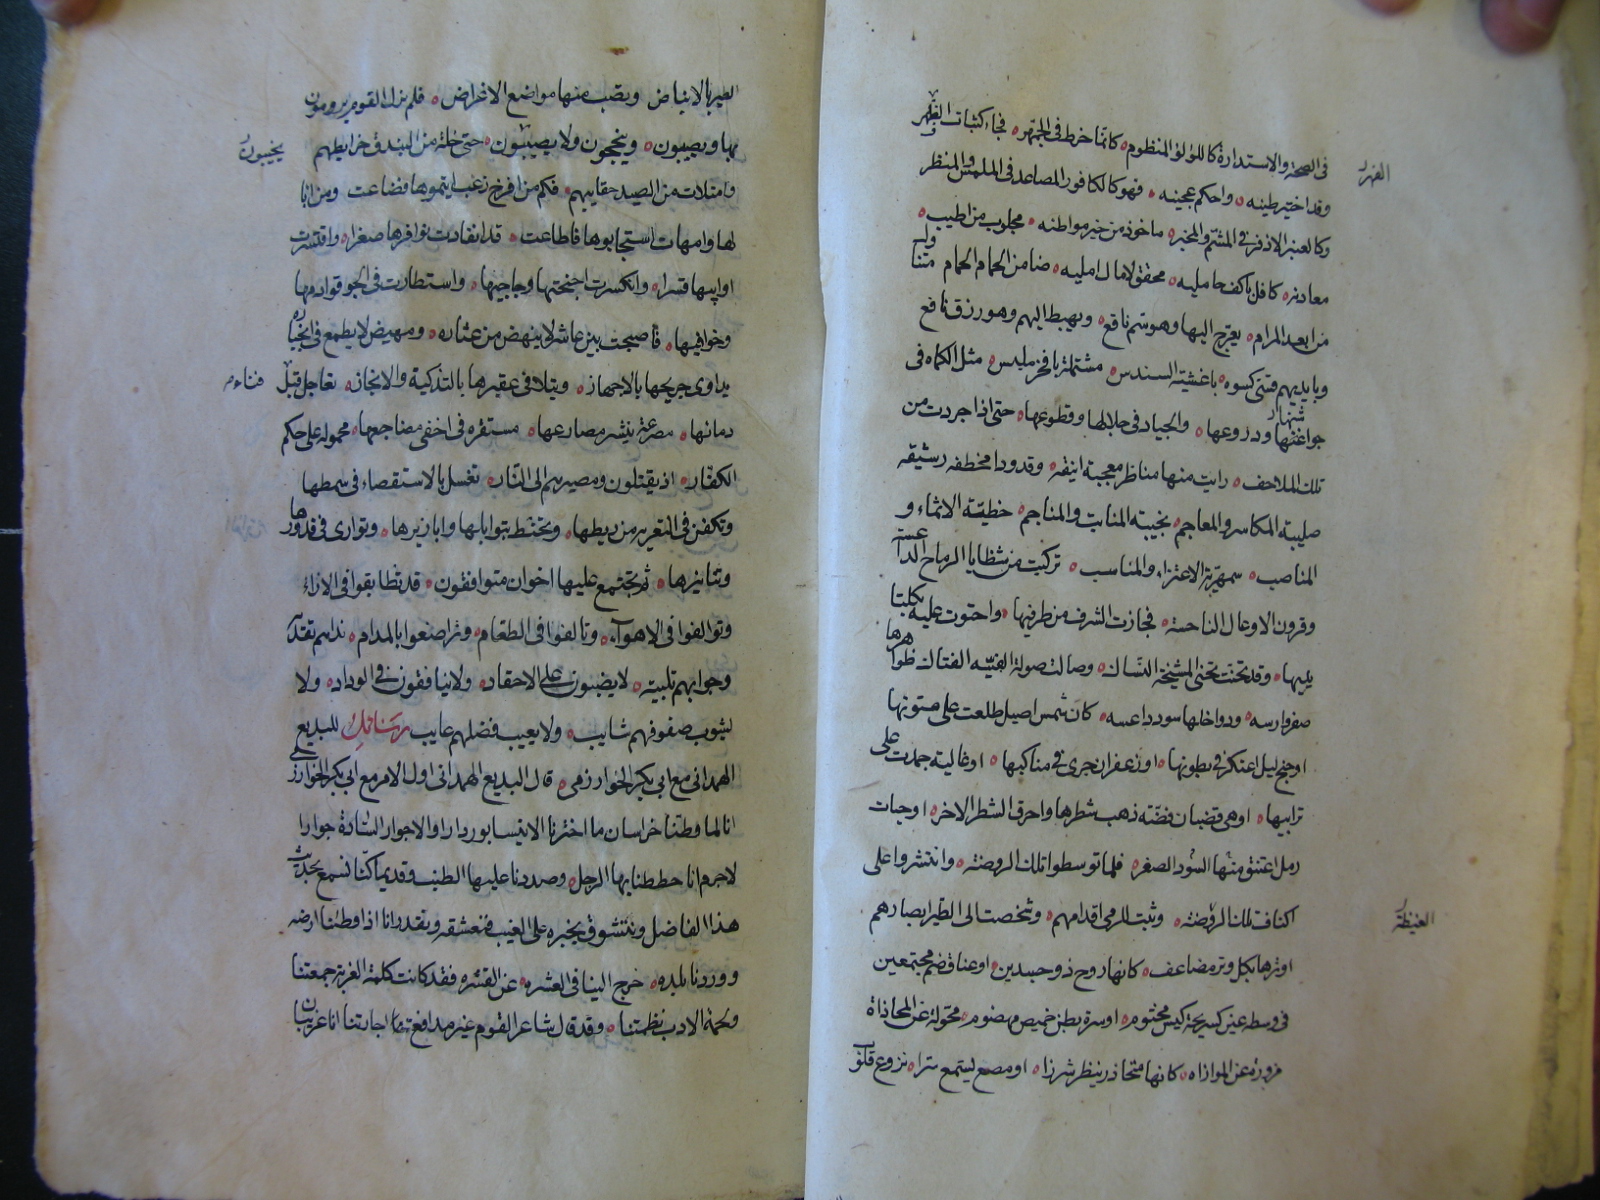 فى الصحة والاستدارة كاللؤلؤ المنظوم كانما خرط فى الجهر فجاء كبنات الظهر
وقد اختير طينه واحكم عجينه فهو كالكافور المصاعد فى الملمس والمنظر
وكالعنبر الاذفر فى المشم والمخبر ماخوذ من خير مواطنه مجلوب من اطيب
معادنه كافل باكف حامليه محقق لامال امليه ضامن الحمام الحمام متناوله
من ابعد المرام يعرج اليها وهو سم ناقع ويهبط اليهم وهو رزق نافع
وبايديهم قسى كسوه باغشية السندس مشتملة بافخر ملبس مثل الكماه فى
جواشنها ودروعها والجياد فى جلالها وقطوعها حتى اذا جردت من
تلك الملاحف رايت منها مناظر معجبة انيقه وقدودا مخطفه رشيقه
صليبة المكاسر والمعاجم نجيبة المنابت والمناجم خطية الانتماء و
المناصب سمهرية الاعتزاء والمناسب تركبت من شظايا الرماح الداعسة
وقرون الاوعال الناخسة فحازت الشرف من طرفيها واحتوت عليه بكلتا
يديها وقد تحنت تحنى المشيخة النساك وصالت صولة الفتية الفتاك ظواهرها
صفر وارسه ودواخلها سود داعسه كان شمس اصيل طلعت على متونها
او جنح ليل اعتكر فى بطونها او زعفران جرى فى مناكبها او غالية جمدت على
ترايبها او هى قضبان فضة ذهب شطرها واحرق الشطر الاخر او حيات
رمل اعتنق منها السود الصفر فلما توسطوا تلك الروضة وانتشروا على
اكناف تلك الروضة وثبت للرمى اقدامهم وشخصت الى الطير ابصارهم
اوترها بكل وتر مضاعف كانها روح ذو جسدين او عناق ضم مجتمعين
فى وسطه عين كسريحة كيس مختوم او سرة بطن خميص مهضوم محولة عن المحاذاة
مزوره عن الموازاه كانها متحاذر ينظر شزرا او مصغ يستمع سرا نزوع قلوب
الطير بالانباض وتصب منها مواضع الاغراض فلم يزل القوم يرومون
بها ويصيبون وينجحون ولا يصيبون حتى خلت من البندق خرايطهم
وامتلات من الصيد حقايبهم فكم من افرخ زغب ايتموها فضاعت ومن ابا
لها وامهات استجابوها فاطاعت قد انقادت نوافرها صغرا واقتسرت
اوابيها قسرا وانكسرت اجنحتها وجاجيها واستطارت فى الجو قوادمها
وخوافيها فاصبحت بين عاثر لا ينهض من عثاره ومهيض لا يطمع فى انجباره
يداوى جريحها بالاجهاز ويتلافى عقيرها بالتذكية والانجاز تعاجل قبل
دمائها مصرعة بنشر مصارعها مستقره فى اخفى مضاجعها محموله على حكم
الكفار اذ يقتلون ومصيرهم الى النار تغسل بالاستقصاء فى سمطها
وتكفن فى التعرير من ريطها وتحنط بتوابلها وابازيرها وتوارى فى قدورها
وتنانيرها ثم تجتمع عليها اخوان متوافقون قد تطابقوا فى الاراء
وتوالفوا فى الاهواء وتالفوا فى الطعام وتراضعوا بالمدام ندامهم تفدية
وجوابهم تلبية لا يضبنون على الاحقاد ولا ينافقون فى الوداد ولا
يشوب صفوفهم شايب ولا يعيب فضلهم عايب رسائل للبديع
الهمدانى مع ابى بكر الخوارزمى قال البديع الهمدانى اول الامر مع ابى بكر الخوارزمى
انا لما وطئنا خراسان ما اخترنا الا نيسابور دارا والا جوار السادة جوارا
لا جرم انا حططنا بها الرحل ومددنا عليها الطنب وقديما كنا نسمع بحديث
هذا الفاضل ونتشوق بخبره على الغيب فنتعشقه ونقدر انا اذا وطئنا ارضه
ووردنا بلده خرج الينا فى العشرة عن القشره فقد كانت كلمة الغربة جمعتنا
ولحمة الادب نظمتنا وقد قال شاعر القوم غير مدافع اجارتنا انا غريبان
يخيبون
فناء
الغيظة